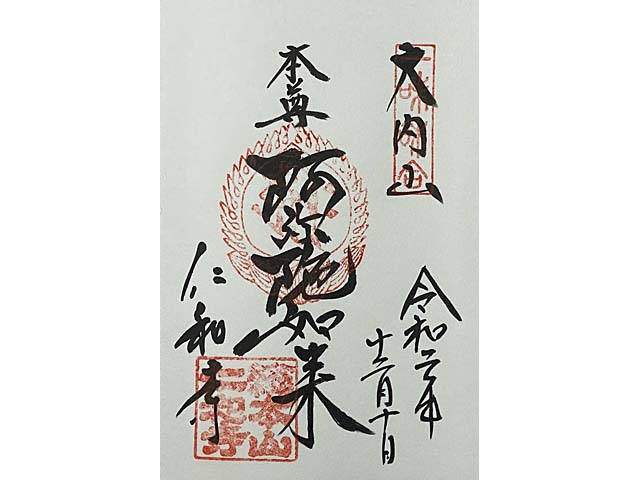 大内山
令和二年
十二月十日
本尊
阿弥陀如来
仁和寺
総本山
仁和寺